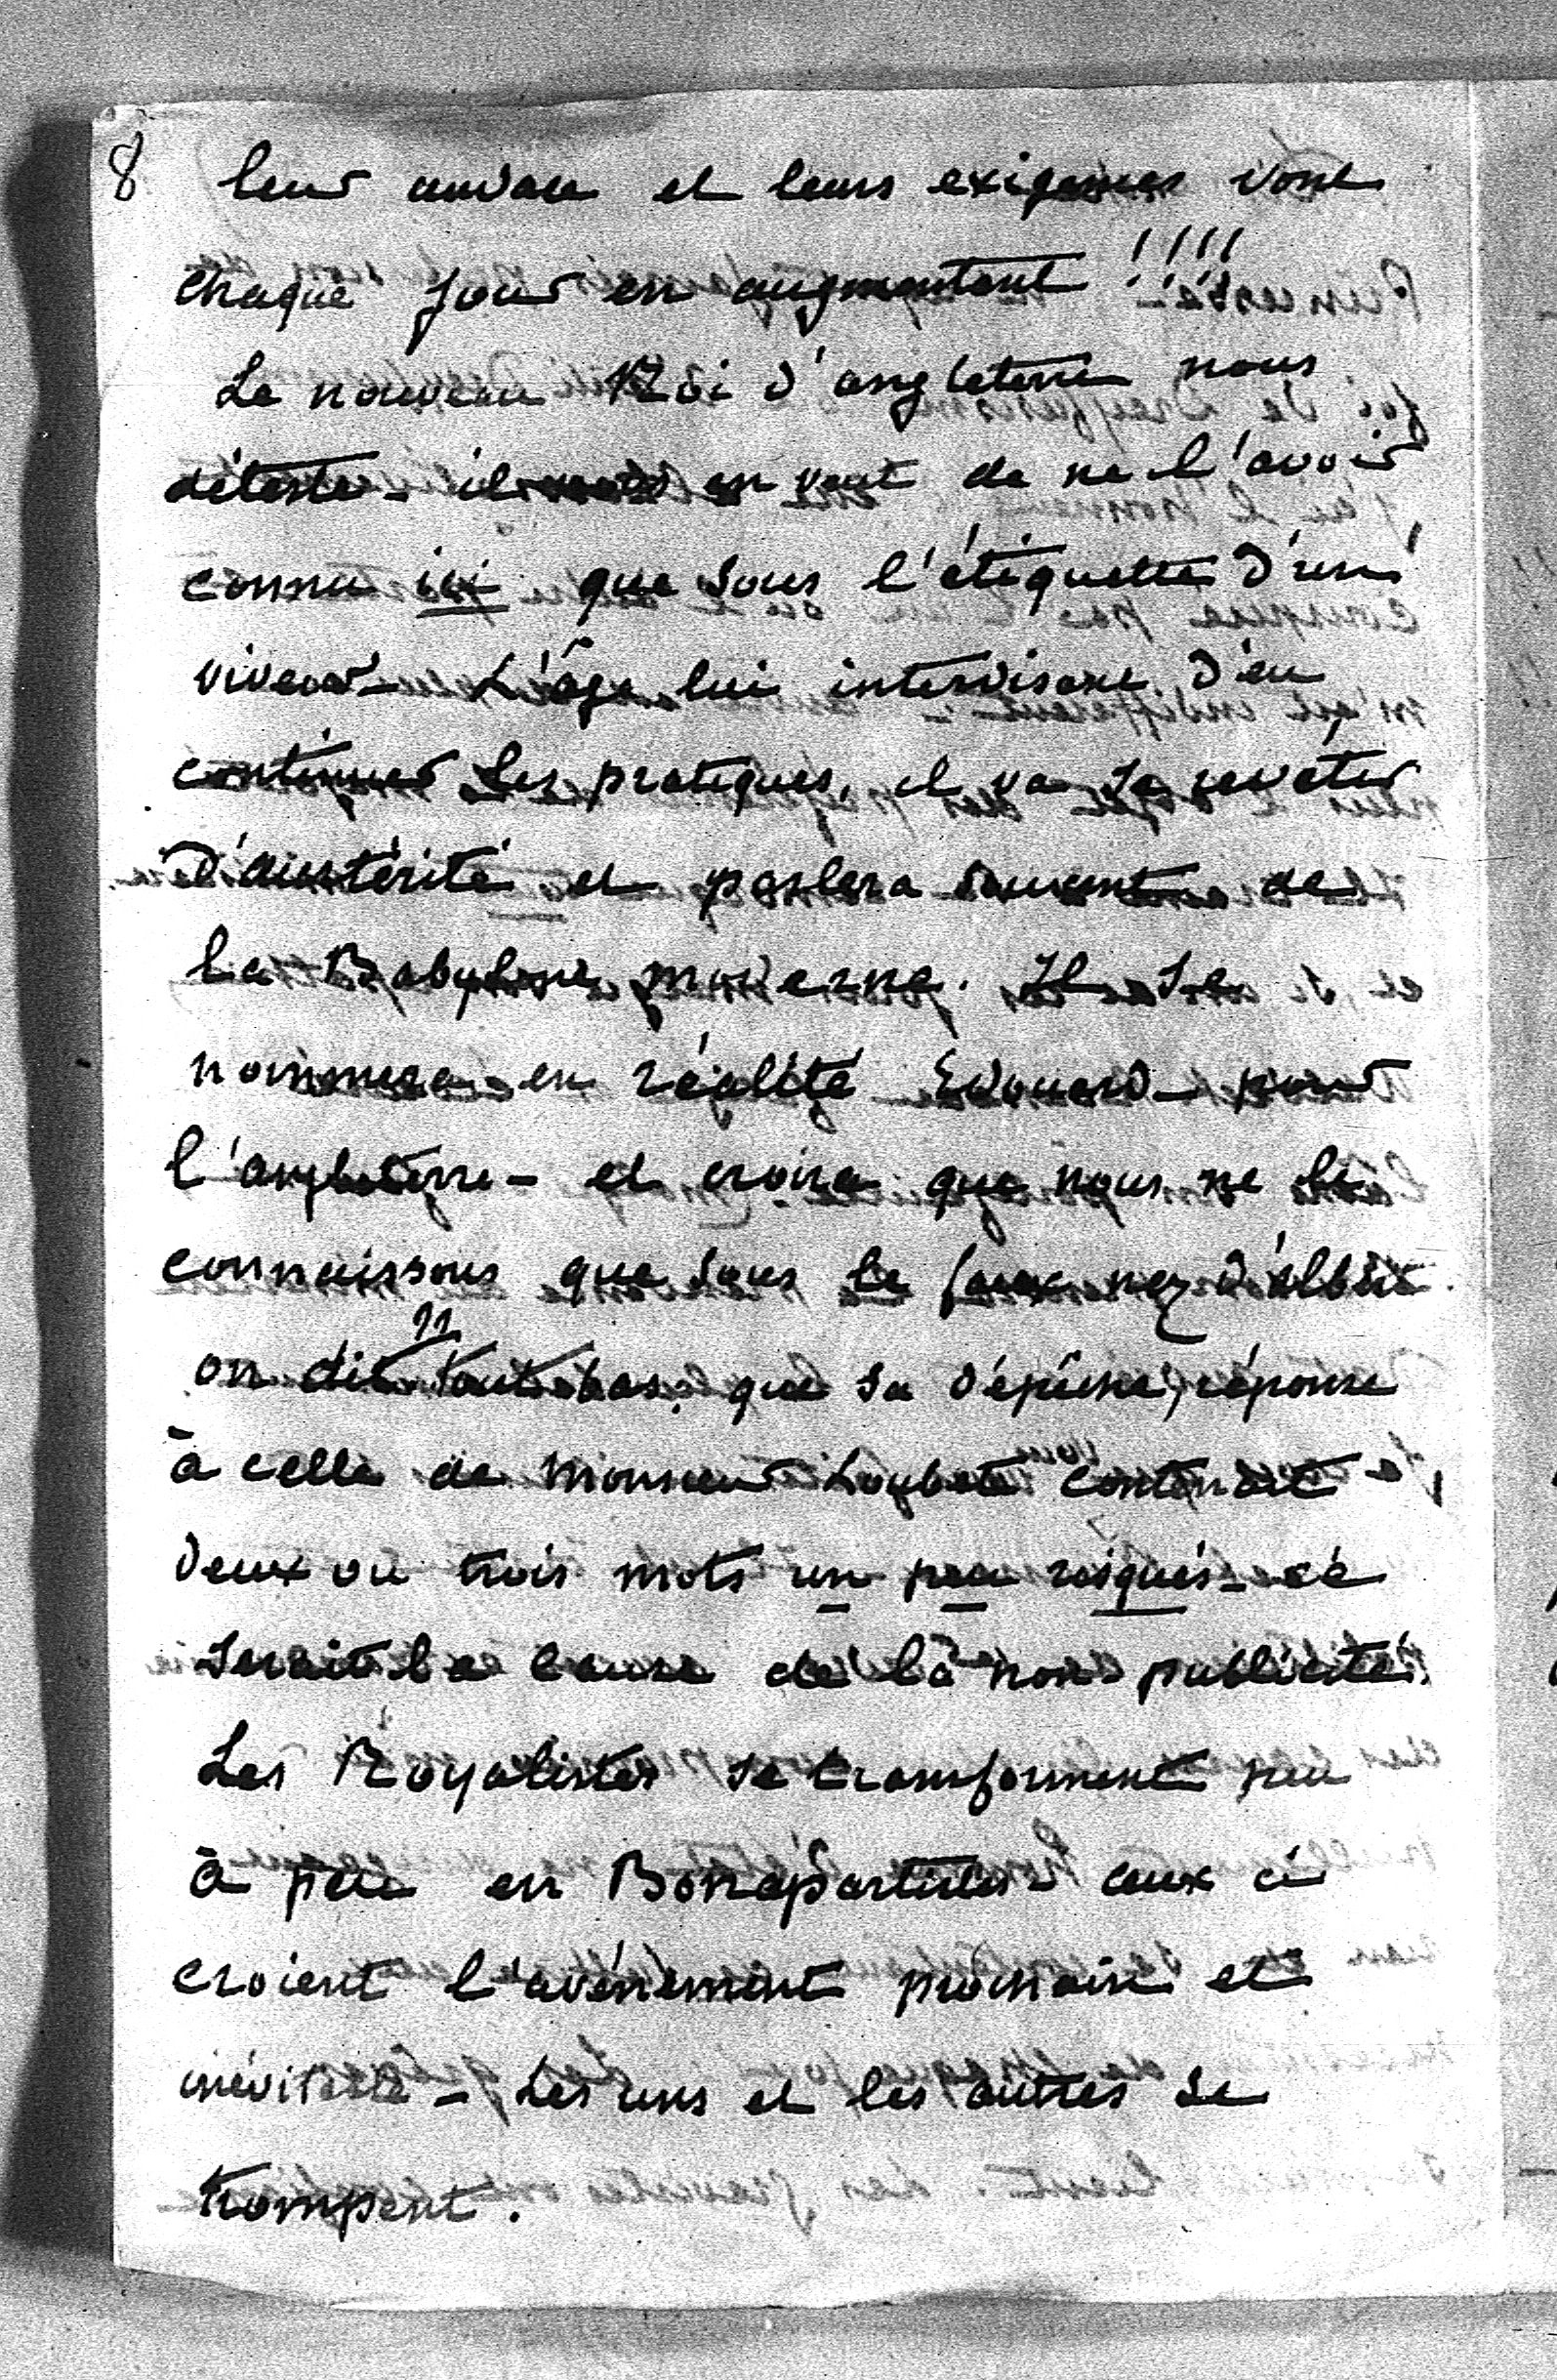 8 leur audace et leurs exigences vont
chaque jour en augmentant !!!!
Le nouveau Roi d'angleterre nous
déteste - il en veut de ne l'avoir
connu ici que sous l'étiquette d'un
viveur - L'âge lui interdisant d'en
continuer les pratiques, il va se revêtir
d'austérité et parlera souvent de
la Babylone moderne. Il se
nommera en réalité Edouard - pour
l'angleterre - et croira que nous ne le
connaissons que sous le faux nez d'albert
on dit tout bas, que sa dépêche, réponse
à celle de Monsieur Loubet contenait
deux ou trois mots un peu risqués - ce
serait la cause de la non publicité.
Les Royalistes se transforment peu
à peu en Bonapartistes ceux ci
croient l'avénement prochain et
inévitable - Les uns et les autres se
trompent.